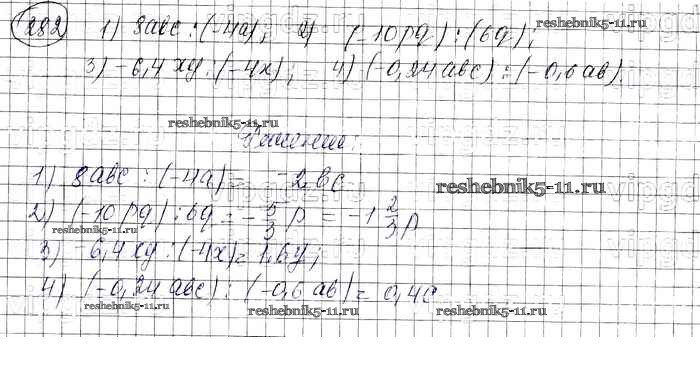 282 1) 8abc : (-4a); 2) (-10pq) : (6q);
reshebnik5-11.ru
3) -6,4xy : (-4x); 4) (-0,24abc) : (-0,6ab).
reshebnik5-11.ru
Решение:
1) 8abc : (-4a) = -2bc
reshebnik5-11.ru
2) (-10pq) : 6q = -5/3 p = -1 2/3 p
reshebnik5-11.ru
3) -6,4xy : (-4x) = 1,6y;
4) (-0,24abc) : (-0,6ab) = 0,4c
reshebnik5-11.ru reshebnik5-11.ru